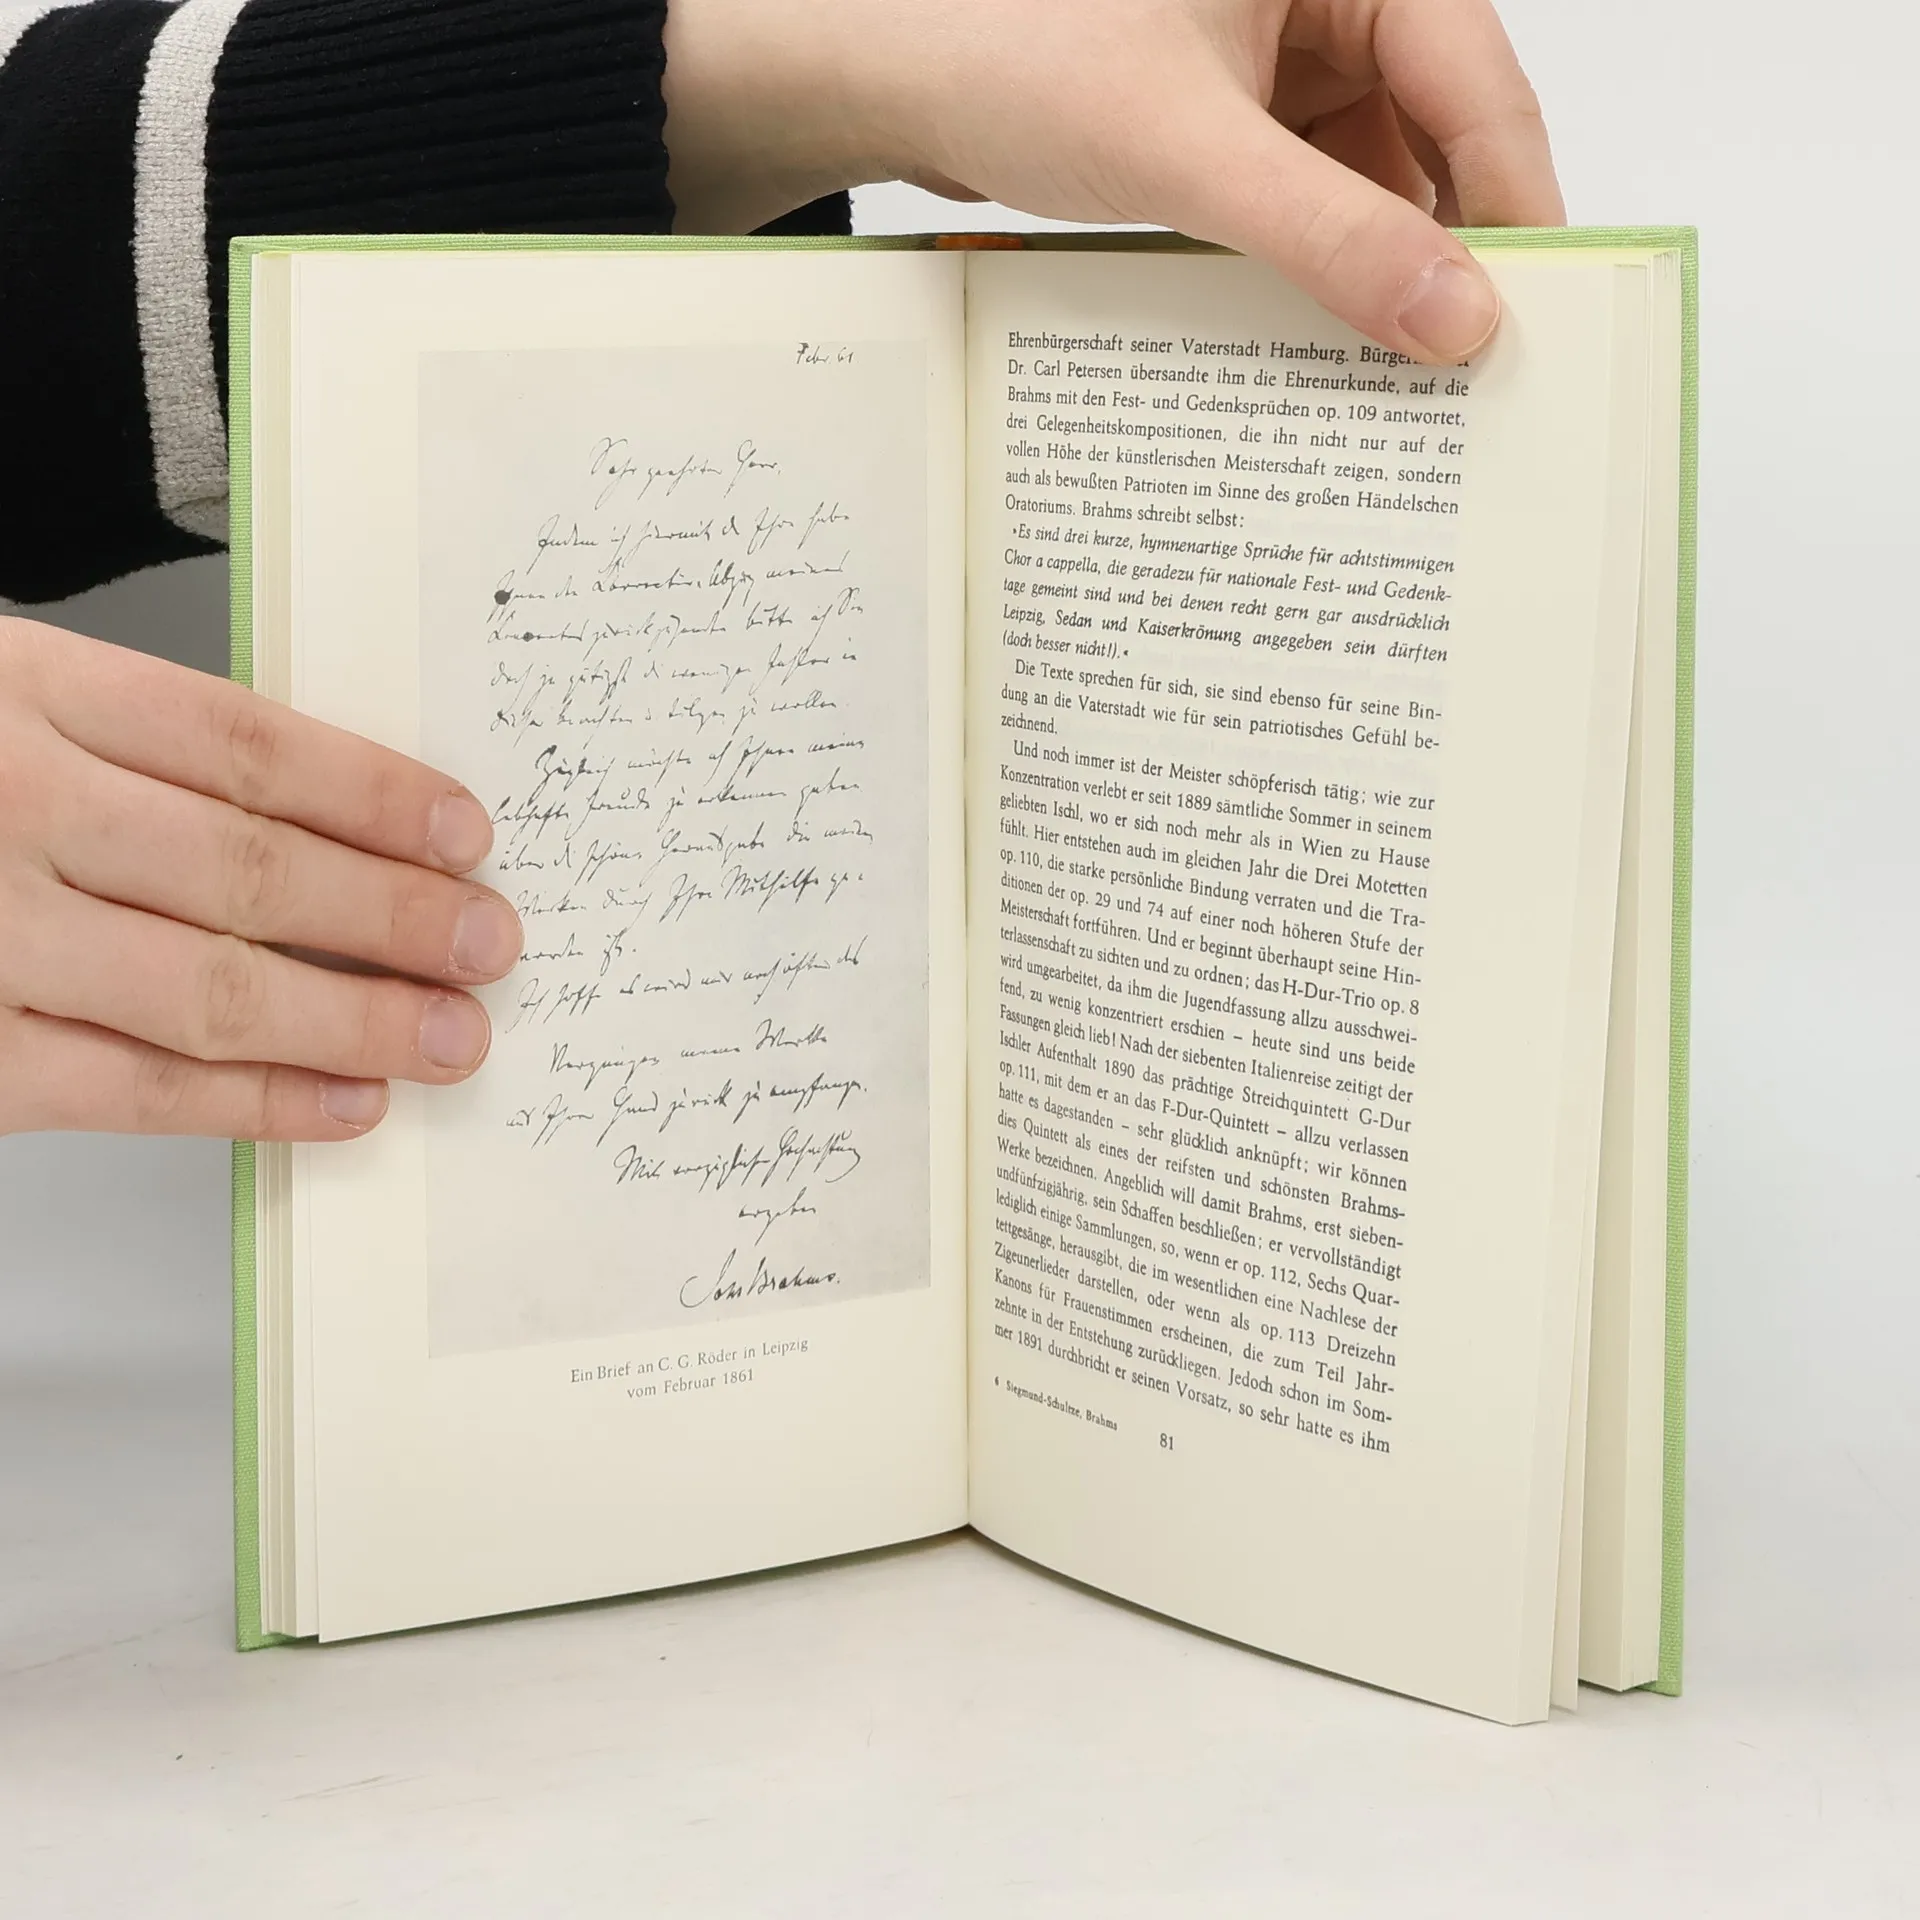 Febr. 61
Sehr geehrter Herr,
Indem ich hiermit
Ihnen den Correctur-Abzug meines
bitte ich Sie
doch ja gütigst die wenigen Fehler in
zu wollen.
Zugleich möchte ich Ihnen meine
lebhafte Freude zu erkennen geben
über die schöne Herausgabe die meinen
Werken durch Ihre Mithilfe ge-
worden ist.
Ich hoffe es wird mir noch öfter das
Vergnügen meine Werke
aus Ihrer Hand zurück zu empfangen.
Mit vorzüglicher Hochachtung
ergeben
Johs Brahms.
Ein Brief an C. G. Röder in Leipzig
vom Februar 1861
Ehrenbürgerschaft seiner Vaterstadt Hamburg.
Dr. Carl Petersen übersandte ihm die Ehrenurkunde, auf die
Brahms mit den Fest- und Gedenksprüchen op. 109 antwortet,
drei Gelegenheitskompositionen, die ihn nicht nur auf der
vollen Höhe der künstlerischen Meisterschaft zeigen, sondern
auch als bewußten Patrioten im Sinne des großen Händelschen
Oratoriums. Brahms schreibt selbst:
»Es sind drei kurze, hymnenartige Sprüche für achtstimmigen
Chor a cappella, die geradezu für nationale Fest- und Gedenk-
tage gemeint sind und bei denen recht gern gar ausdrücklich
Leipzig, Sedan und Kaiserkrönung angegeben sein dürften
(doch besser nicht!).«
Die Texte sprechen für sich, sie sind ebenso für seine Bin-
dung an die Vaterstadt wie für sein patriotisches Gefühl be-
zeichnend.
Und noch immer ist der Meister schöpferisch tätig; wie zur
Konzentration verlebt er seit 1889 sämtliche Sommer in seinem
geliebten Ischl, wo er sich noch mehr als in Wien zu Hause
fühlt. Hier entstehen auch im gleichen Jahr die Drei Motetten
op. 110, die starke persönliche Bindung verraten und die Tra-
ditionen der op. 29 und 74 auf einer noch höheren Stufe der
Meisterschaft fortführen. Und er beginnt überhaupt seine Hin-
terlassenschaft zu sichten und zu ordnen; das H-Dur-Trio op. 8
wird umgearbeitet, da ihm die Jugendfassung allzu ausschwei-
fend, zu wenig konzentriert erschien – heute sind uns beide
Fassungen gleich lieb! Nach der siebenten Italienreise zeitigt der
Ischler Aufenthalt 1890 das prächtige Streichquintett G-Dur
op. 111, mit dem er an das F-Dur-Quintett – allzu verlassen
hatte es dagestanden – sehr glücklich anknüpft; wir können
dies Quintett als eines der reifsten und schönsten Brahms-
Werke bezeichnen. Angeblich will damit Brahms, erst sieben-
undfünfzigjährig, sein Schaffen beschließen; er vervollständigt
lediglich einige Sammlungen, so, wenn er op. 112, Sechs Quar-
tettgesänge, herausgibt, die im wesentlichen eine Nachlese der
Zigeunerlieder darstellen, oder wenn als op. 113 Dreizehn
Kanons für Frauenstimmen erscheinen, die zum Teil Jahr-
zehnte in der Entstehung zurückliegen. Jedoch schon im Som-
mer 1891 durchbricht er seinen Vorsatz, so sehr hatte es ihm
6 Siegmund-Schultze, Brahms
81